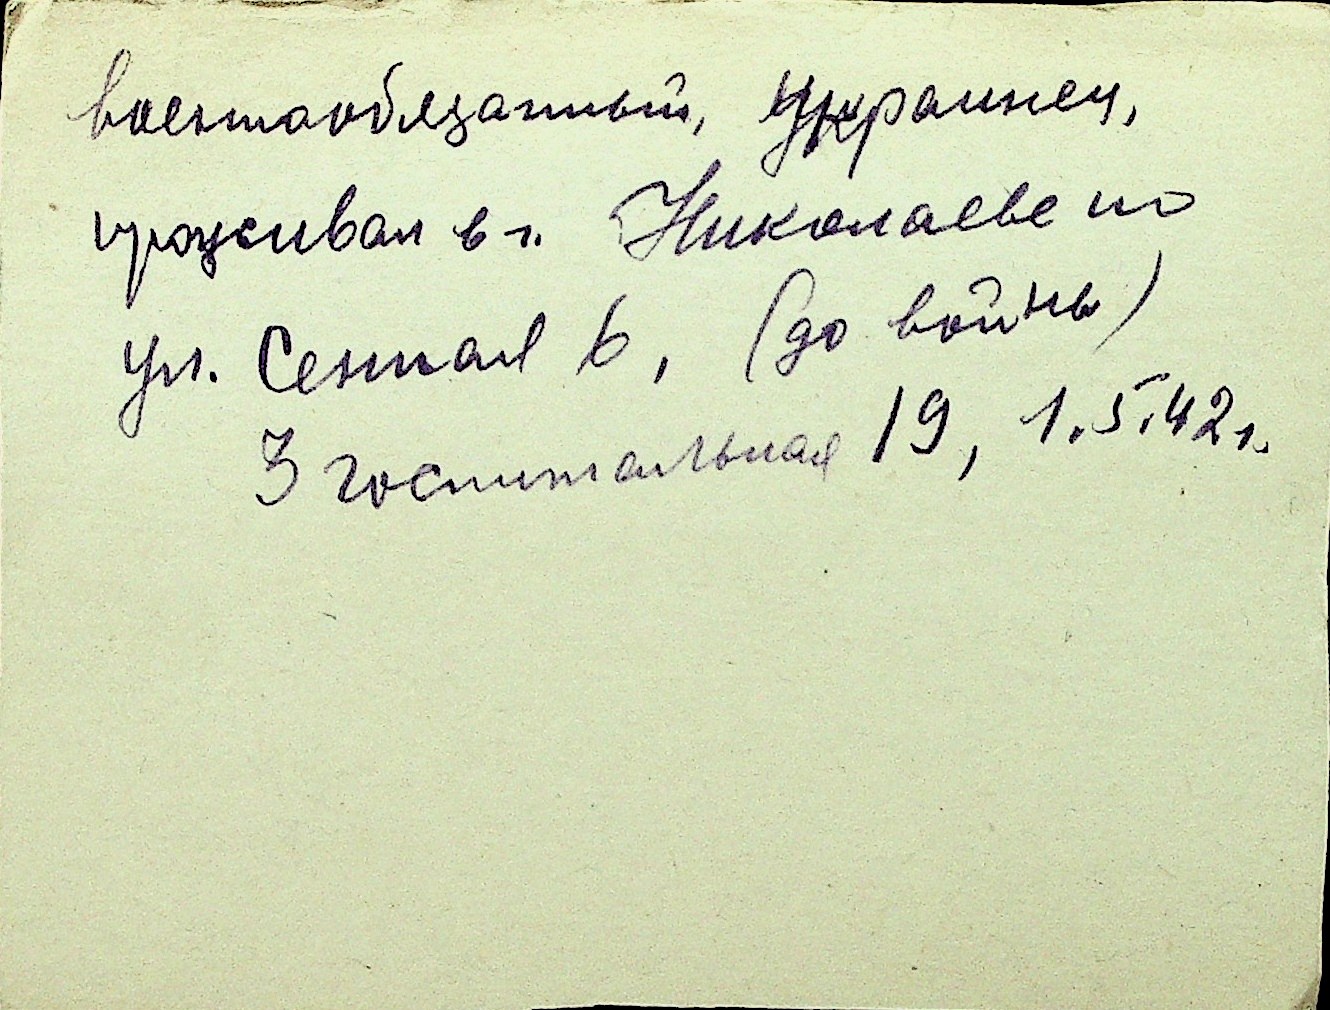 военнообязанный, Украинец,
проживал в г. Николаеве по
ул. Сенная 6, (до войны)
3 госпитальная 19, 1.5.42 г.